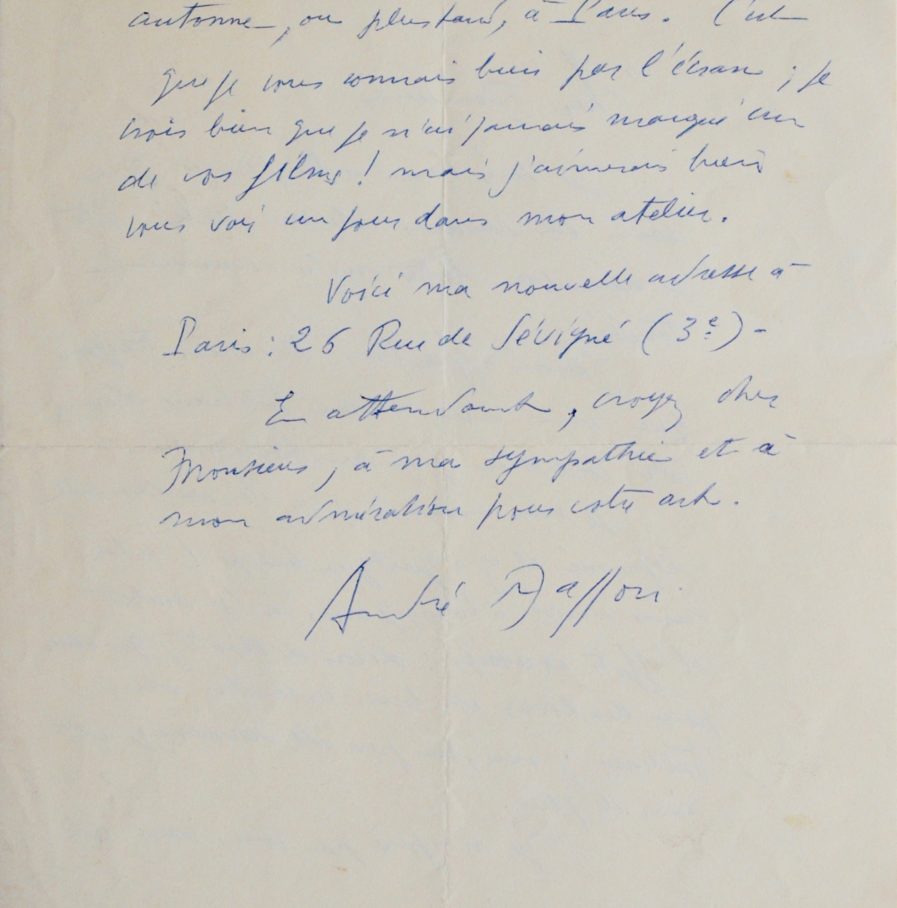 automne, ou plus tard, à Paris. C'est
que je vous connais bien par l'écran ; je
crois bien que je n'ai jamais manqué un
de vos films ! mais j'aimerais bien
vous voir un jour dans mon atelier.
Voici ma nouvelle adresse à
Paris : 26 Rue de Sévigné (3e) -
En attendant, croyez cher
Monsieur, à ma sympathie et à
mon admiration pour votre art.
André Masson